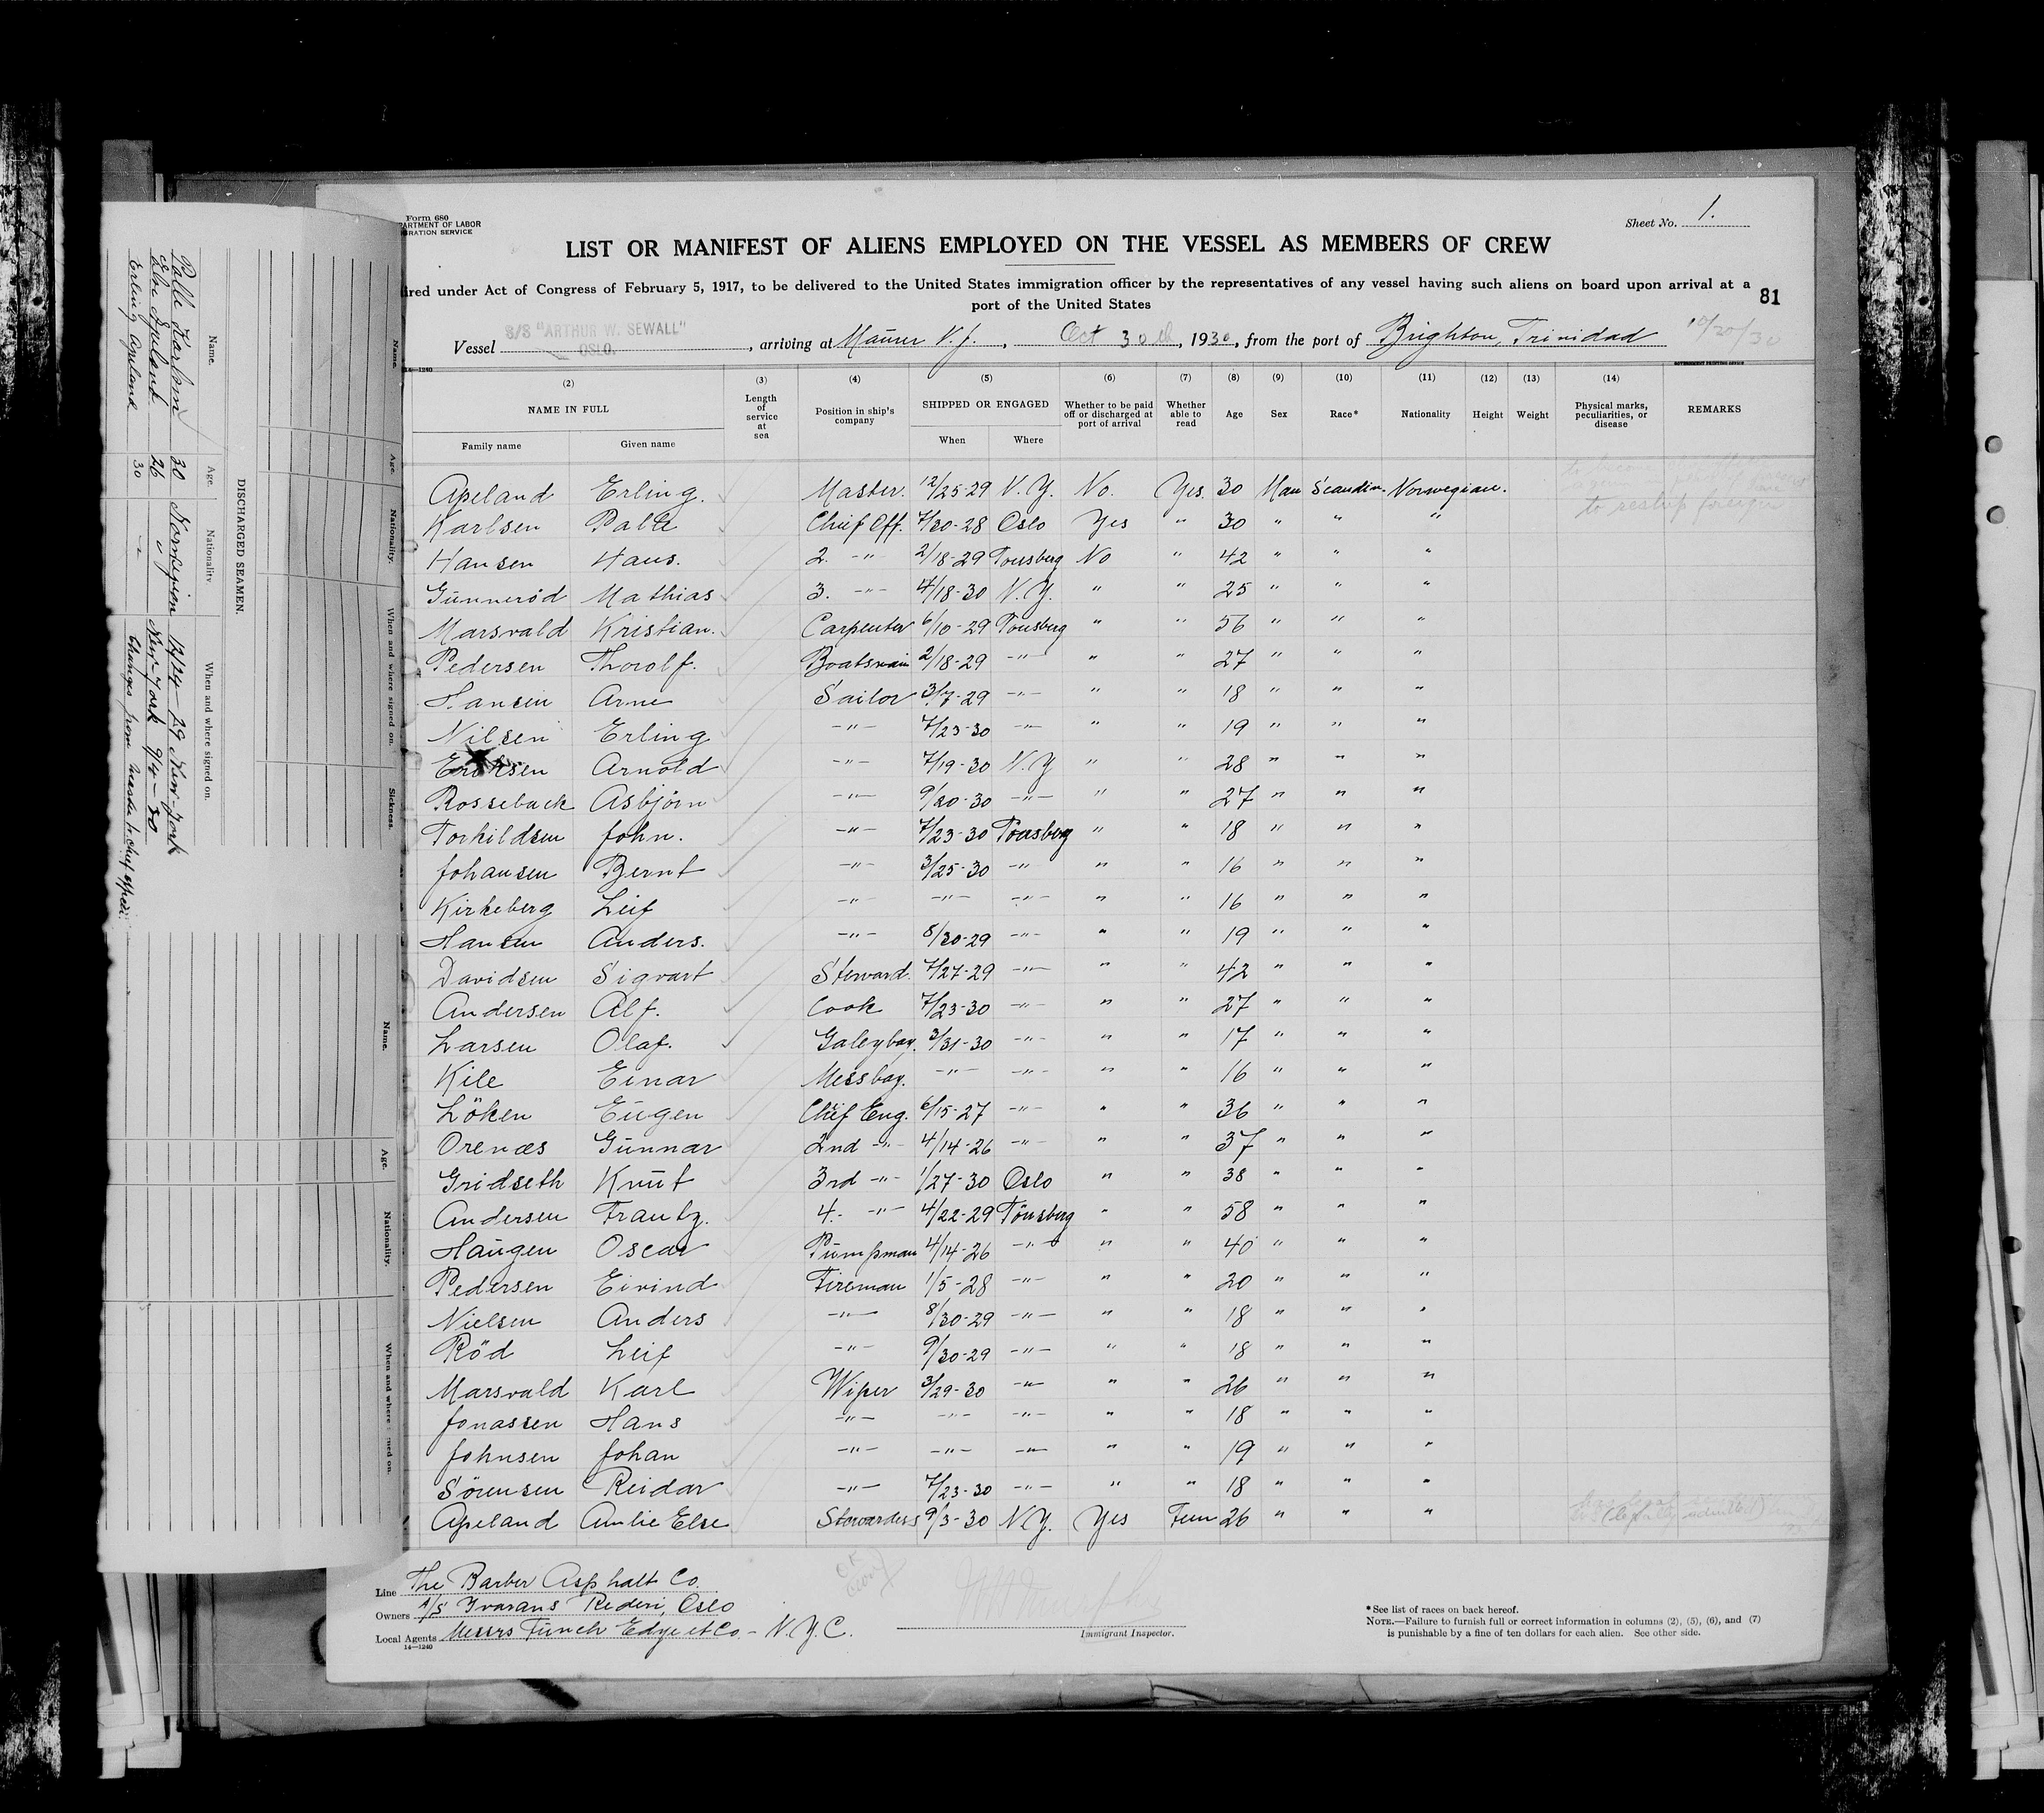 Form 680
ARTMENT OF LABOR
GRATION SERVICE
Sheet No. 1.
LIST OR MANIFEST OF ALIENS EMPLOYED ON THE VESSEL AS MEMBERS OF CREW
ired under Act of Congress of February 5, 1917, to be delivered to the United States immigration officer by the representatives of any vessel having such aliens on board upon arrival at a
port of the United States
81
Vessel S/S "ARTHUR W. SEWALL" OSLO. , arriving at Maurer N.J. , Oct 30th, 1930, from the port of Brighton, Trinidad 10/30/30
14—1240
(2) (3) (4) (5) (6) (7) (8) (9) (10) (11) (12) (13) (14)
NAME IN FULL Length of service at sea Position in ship's company SHIPPED OR ENGAGED Whether to be paid off or discharged at port of arrival Whether able to read Age Sex Race* Nationality Height Weight Physical marks, peculiarities, or disease REMARKS
Family name Given name When Where
Apeland Erling. Master. 12/25-29 N.Y. No. Yes. 30 Man Scandin. Norwegian.
to reship foreign
Karlsen Palle Chief Off. 7/30-28 Oslo Yes " 30 " " "
Hansen Hans. 2. -"- 2/18-29 Tønsberg No " 42 " " "
Gunnerød Mathias 3. -"- 4/18-30 N.Y. " " 25 " " "
Marsvald Kristian. Carpenter 6/10-29 Tønsberg " " 56 " " "
Pedersen Thorolf. Boatswain 2/18-29 -"- " " 27 " " "
Hansen Arne Sailor 3/7-29 -"- " " 18 " " "
Nilsen Erling -"- 7/23-30 -"- " " 19 " " "
Eriksen Arnold -"- 7/19-30 N.Y " " 28 " " "
Rosseback Asbjørn -"- 9/20-30 -"- " " 27 " " "
Torkildsen John. -"- 7/23-30 Tønsberg " " 18 " " "
Johansen Bernt -"- 3/25-30 -"- " " 16 " " "
Kirkeberg Leif -"- -"- -"- " " 16 " " "
Hansen Anders. -"- 8/30-29 -"- " " 19 " " "
Davidsen Sigvart Steward. 7/27-29 -"- " " 42 " " "
Andersen Alf. Cook 7/23-30 -"- " " 27 " " "
Larsen Olaf. Galeyboy. 3/31-30 -"- " " 17 " " "
Kile Einar Messboy. -"- -"- " " 16 " " "
Löken Eugen Chief Eng. 6/15-27 -"- " " 36 " " "
Orenæs Gunnar 2nd -"- 4/14-26 -"- " " 37 " " "
Gridseth Knut 3rd -"- 1/27-30 Oslo " " 38 " " "
Andersen Frantz. 4. -"- 4/22-29 Tönsberg " " 58 " " "
Haugen Oscar Pumpman 4/14-26 -"- " " 40 " " "
Pedersen Eivind Fireman 1/5-28 -"- " " 20 " " "
Nielsen Anders -"- 8/30-29 -"- " " 18 " " "
Röd Leif -"- 9/30-29 -"- " " 18 " " "
Marsvald Karl Wiper 3/29-30 -"- " " 26 " " "
Jonassen Hans -"- -"- -"- " " 18 " " "
Johnsen Johan -"- -"- -"- " " 19 " " "
Sörensen Reidar -"- 7/23-30 -"- " " 18 " " "
Apeland Amlie Else Stewardess 9/3-30 N.Y. Yes Fem 26 " " " (legally admitted)
Line The Barber Asphalt Co.
Owners A/S Ivarans Rederi, Oslo
Local Agents Messrs Funch Edye et Co. - N.Y.C.
14—1240
Immigrant Inspector.
*See list of races on back hereof.
NOTE.—Failure to furnish full or correct information in columns (2), (5), (6), and (7)
is punishable by a fine of ten dollars for each alien. See other side.
DISCHARGED SEAMEN.
Name. Age. Nationality When and where signed on.
Palle Karlsen 30 Norwegian 12/24-29 New-York
Else Apeland 26 " New-York 9/4-30
Erling Apeland 30 " Changes from master to chief officer.
Name. Age. Nationality. When and where signed on. Sickness.
Name. Age. Nationality. When and where ned on.